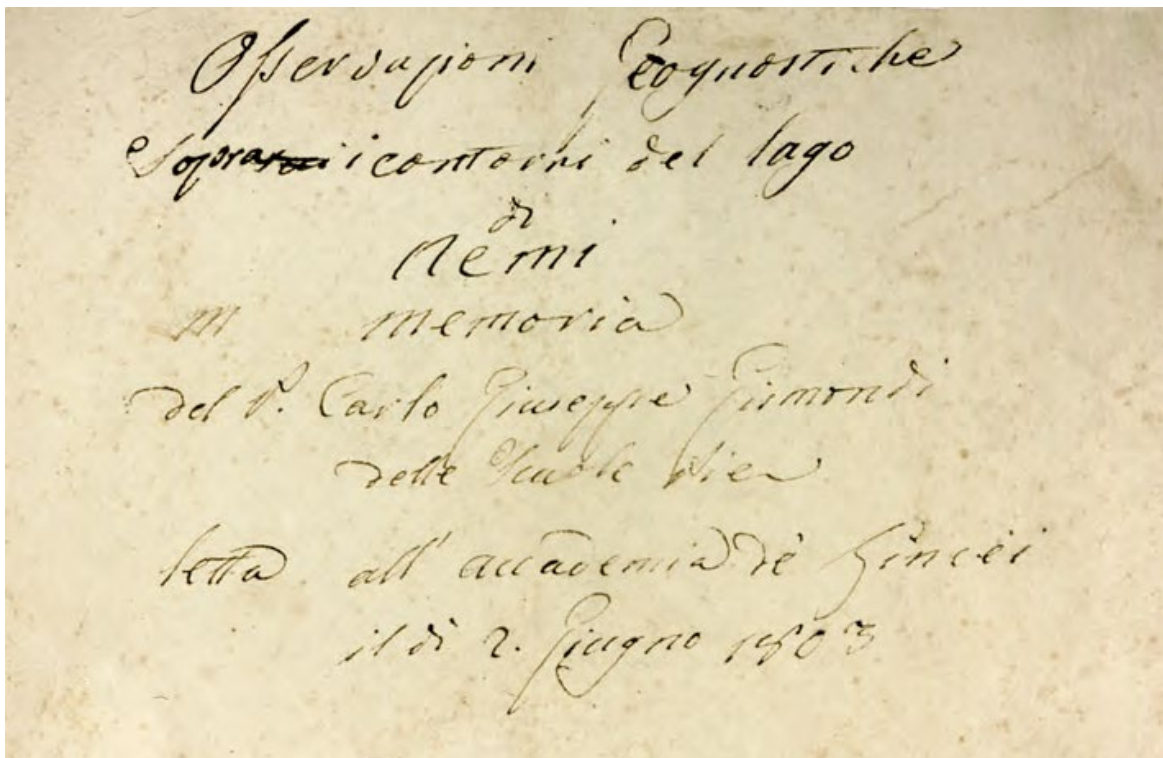 Osservazioni Geognostiche
sopra i contorni del lago
di
Nemi
m memoria
del P. Carlo Giuseppe Gismondi
delle Scuole Pie
letta all' accademia de' Lincei
il dì 2. Giugno 1803